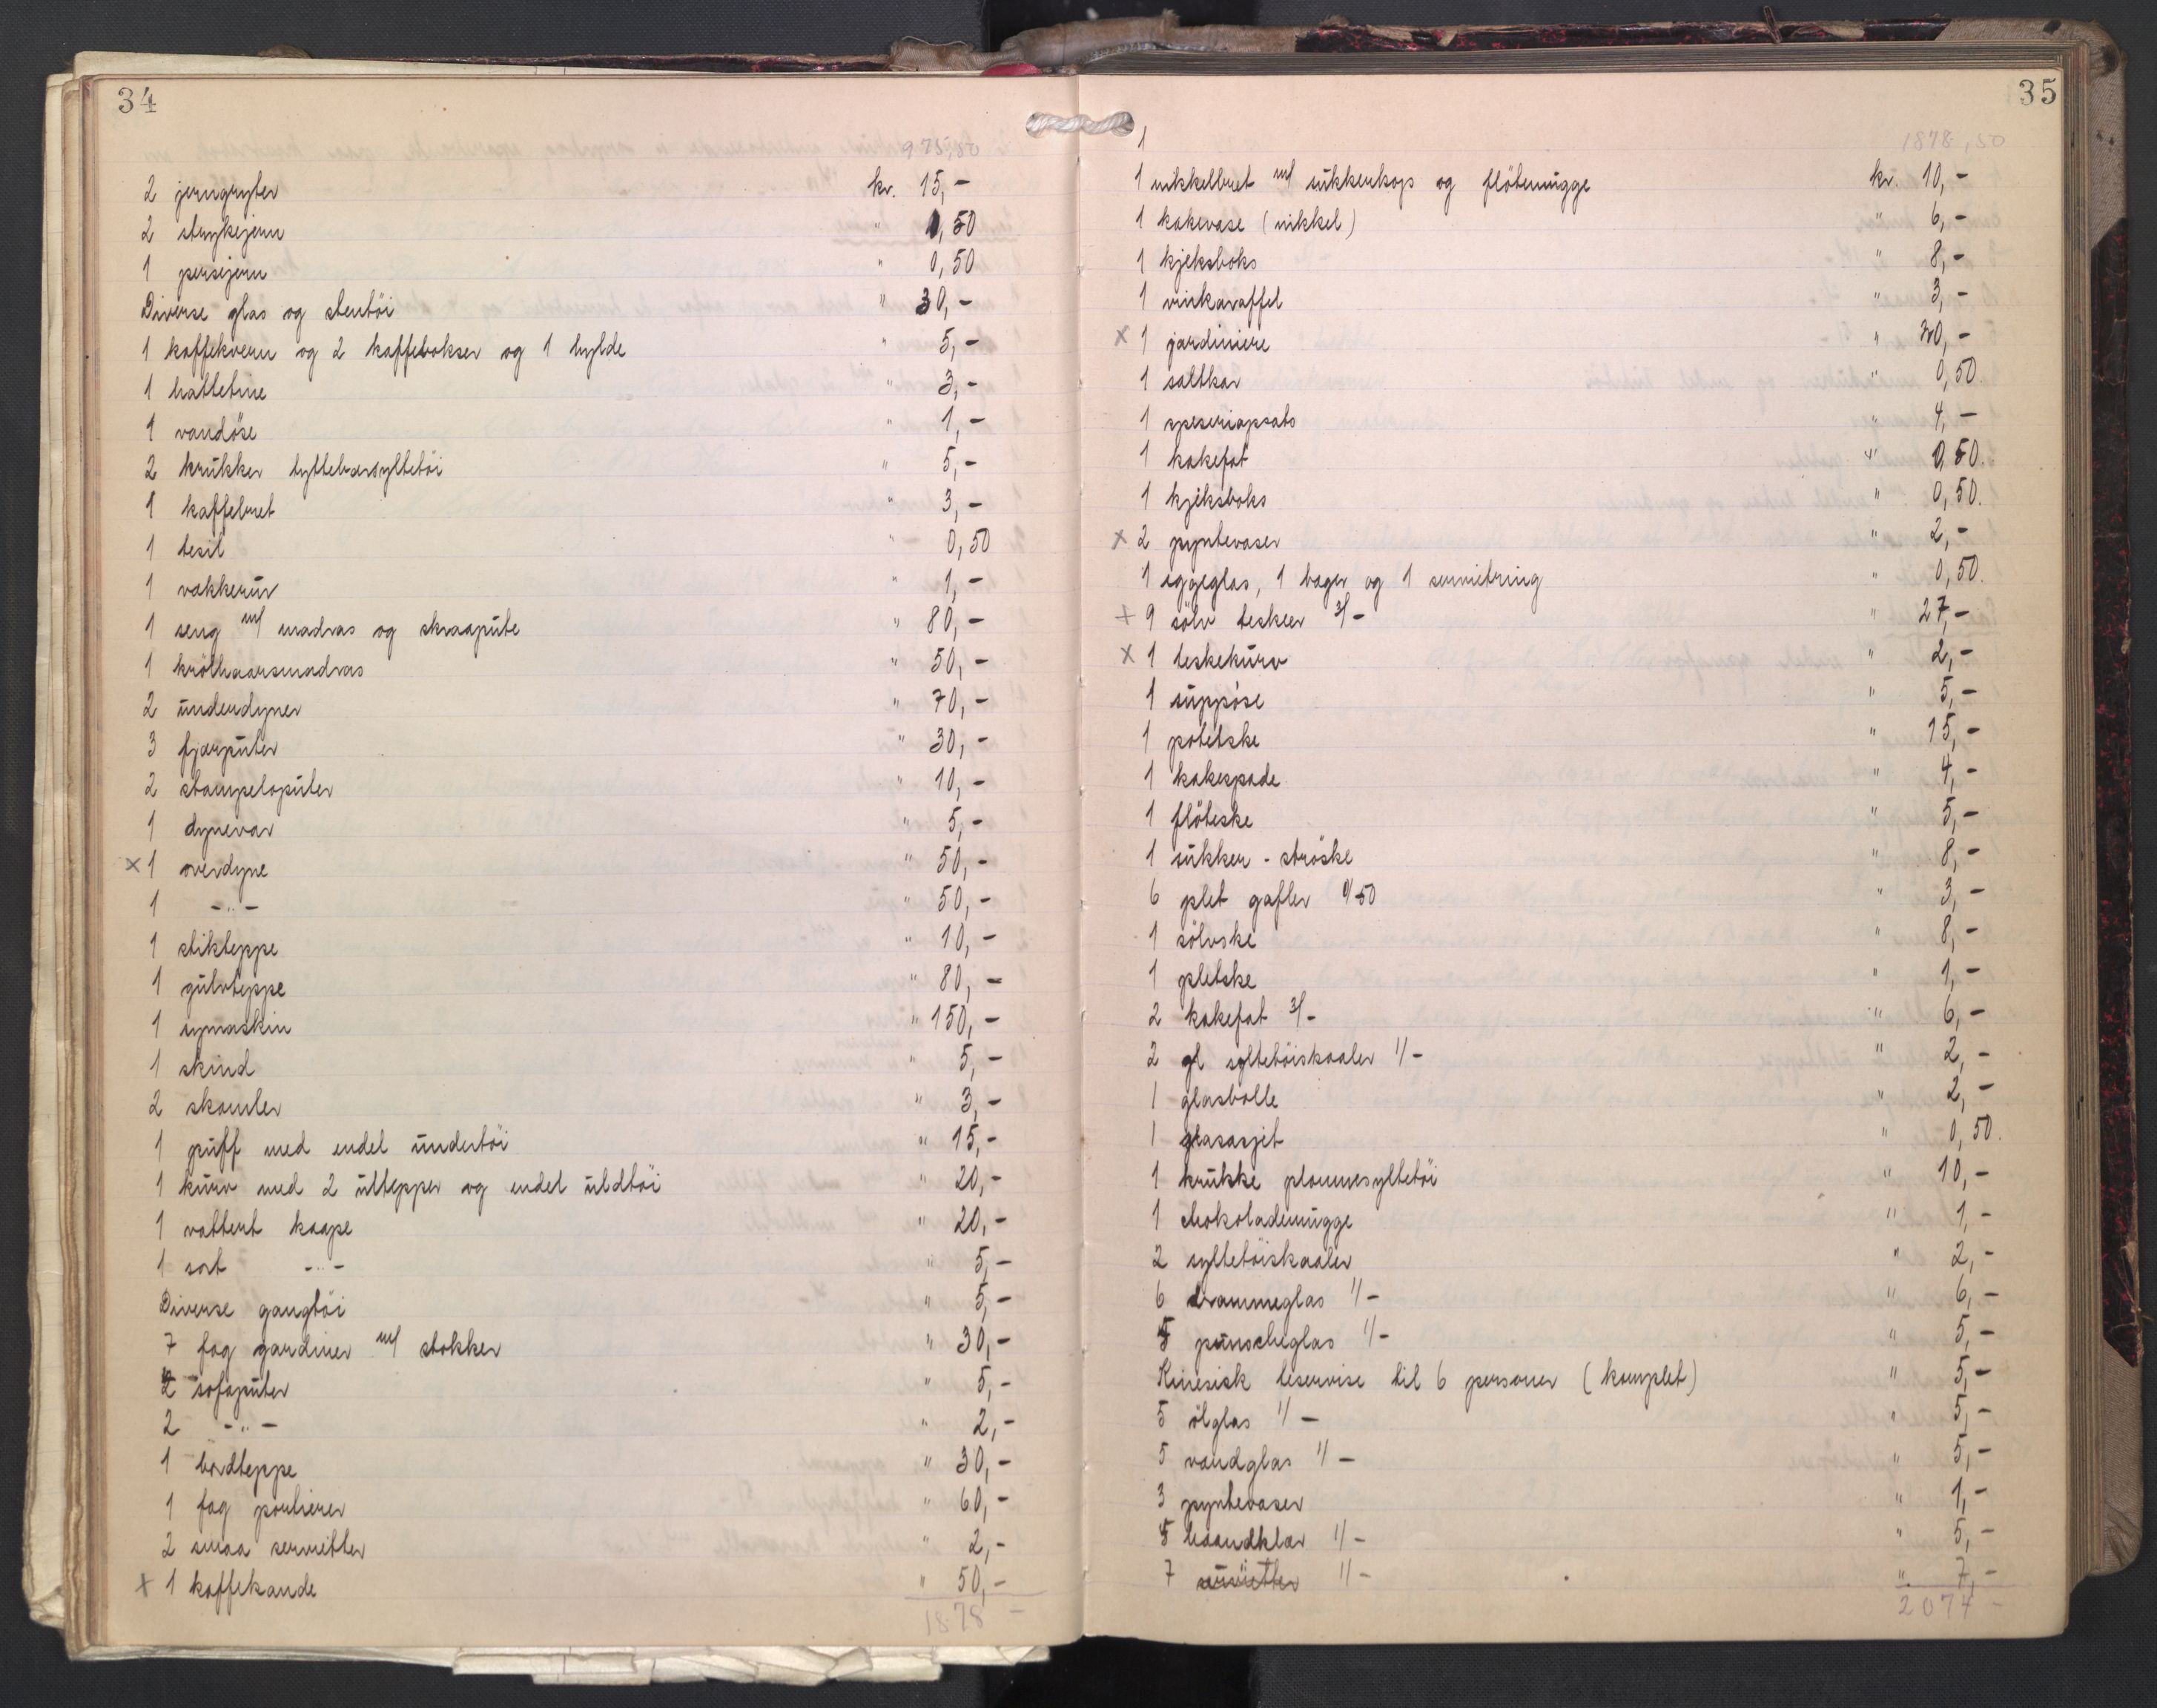 34
975,50
2 jerngryter kr. 15,-
2 strykejern " 1,50
1 persejern " 0,50
Diverse glas og stentöi " 30,-
1 kaffekvern og 2 kaffebokser og 1 hylde " 5,-
1 hattetine " 3,-
1 vandöse " 1,-
2 krukker tyttebærsyltetöi " 5,-
1 kaffebret " 3,-
1 tesil " - 0,50
1 vækkerur " 1,-
1 seng m/ madras og skraapute " 80,-
1 krölhaarsmadras " 50,-
2 underdyner " 70,-
3 fjærputer " 30,-
2 stampeloputer " 10,-
1 dynevar " 5,-
x 1 overdyne " 50,-
1 -"- " 50,-
1 stikteppe " 10,-
1 gulvteppe " 80,-
1 symaskin " 150,-
1 skind " 5,-
2 skamler " 3,-
1 puff med endel undertöi " 15,-
1 kurv med 2 ultepper og endel uldtöi " 20,-
1 vattert kaape " 20,-
1 sort -"- " 5,-
Diverse gangtöi " 5,-
7 fag gardiner m/ stokker " 30,-
2 sofaputer " 5,-
2 -"- " 2,-
1 bordteppe " 30,-
1 fag portierer " 60,-
2 smaa servietter " 2,-
x 1 kaffekande " 50,-
1878 -
35
1
1878,50
1 nikkelbret m/ sukkerkop og flötemugge kr. 10,-
1 kakevase (nikkel) " 6,-
1 kjeksboks " 8,-
1 vinkaraffel " 3,-
x 1 jardiniere " 30,-
1 saltkar " 0,50
1 speseriopsats " 4,-
1 kakefat " 0,50.
1 kjeksboks " 0,50.
x 2 pyntevaser " 2,-
1 eggeglas, 1 bager og 1 serviettring " 0,50.
x 9 sölv teskeer 3/- " 27,-
x 1 teskekurv " 2,-
1 suppöse " 5,-
1 potetske " 15,-
1 kakespade " 4,-
1 flöteske " 5,-
1 sukker - ströske " 8,-
6 plet gafler 0/50 " 3,-
1 sölvske " 8,-
1 pletske " 1,-
2 kakefat 3/- " 6,-
2 gl syltetöiskaaler 1/- " 2,-
1 glasbolle " 2,-
1 glasasjet " 0,50.
1 krukke plommesyltetöi " 10,-
1 chokolademugge " 1,-
2 syltetöiskaaler " 2,-
6 drammeglas 1/- " 6,-
5 punscheglas 1/- " 5,-
Kinesisk teservise til 6 personer (komplet) " 5,-
5 ölglas 1/- " 5,-
5 vandglas 1/- " 5,-
3 pyntevaser " 1,-
5 haandklær 1/- " 5,-
7 servietter 1/- " 7,-
2074 -